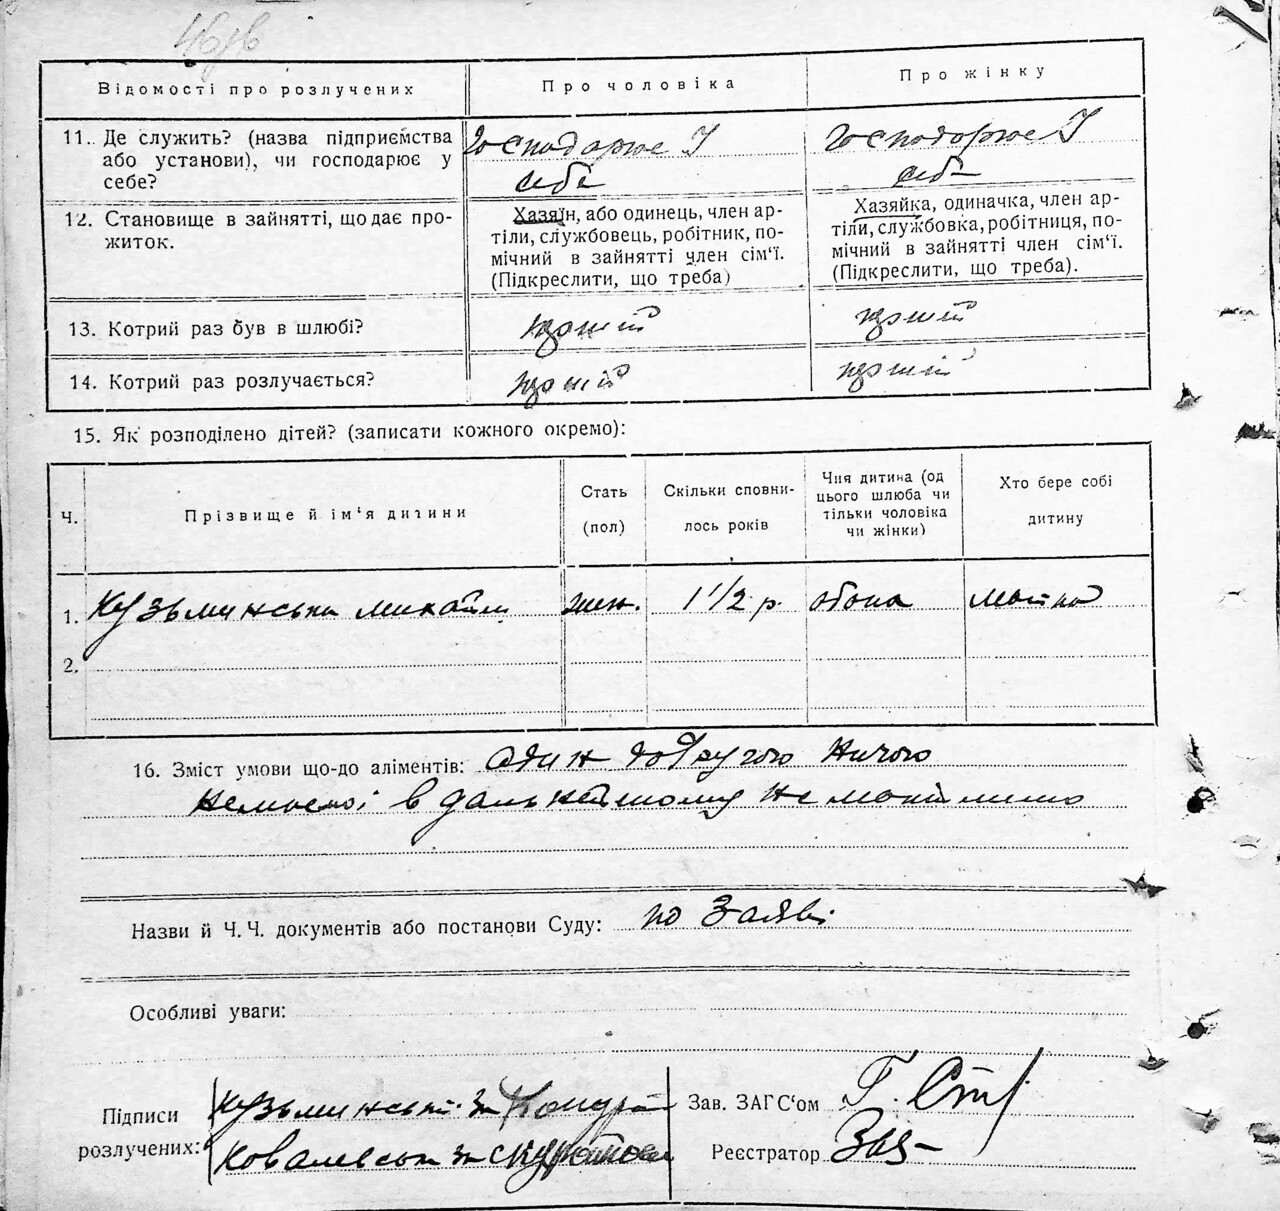 Відомості про розлучених
Про чоловіка
Про жінку
11. Де служить? (назва підприємства або установи), чи господарює у себе?
господарює у
себе
господарює у
себе
12. Становище в зайнятті, що дає про-
житок.
Хазяїн, або одинець, член ар-
тіли, службовець, робітник, по-
мічний в зайнятті член сім‘ї.
(Підкреслити, що треба)
Хазяйка, одиначка, член ар-
тіли, службовка, робітниця, по-
мічний в зайнятті член сім‘ї.
(Підкреслити, що треба).
13. Котрий раз був в шлюбі?
14. Котрий раз розлучається?
15. Як розподілено дітей? (записати кожного окремо):
Ч.
Прізвище й ім‘я дитини
Стать
(пол)
Скільки сповни-
лось років
Чия дитина (од
цього шлюба чи
тільки чоловіка
чи жінки)
Хто бере собі
дитину
1. Кузьминська жен. 1 1/2 р. обопа
2.
16. Зміст умови що-до аліментів: один до другого ничого
немаємо і в дальнейшому не матимемо
Назви й Ч. Ч. документів або постанови Суду: по заяві
Особливі уваги:
Підписи
розлучених:
Кузьминські за
Ковалевська за
Зав. ЗАГС‘ом Г.
Реєстратор